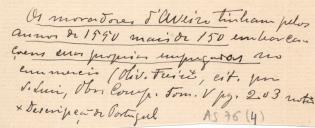 Os moradores d'Aveiro tinham pelos
annos de 1550 mais de 150 embarca-
ções suas proprias empregadas no
commercio (Oliv. Freire, cit. por
S. Luiz, Obr. Comp. Tom. V pg. 203 nota
x Descripção de Portugal
AS 76 (4)